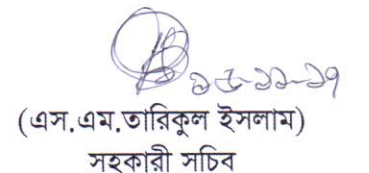 ১৫-১১-১৭
(এস.এম.তারিকুল ইসলাম)
সহকারী সচিব